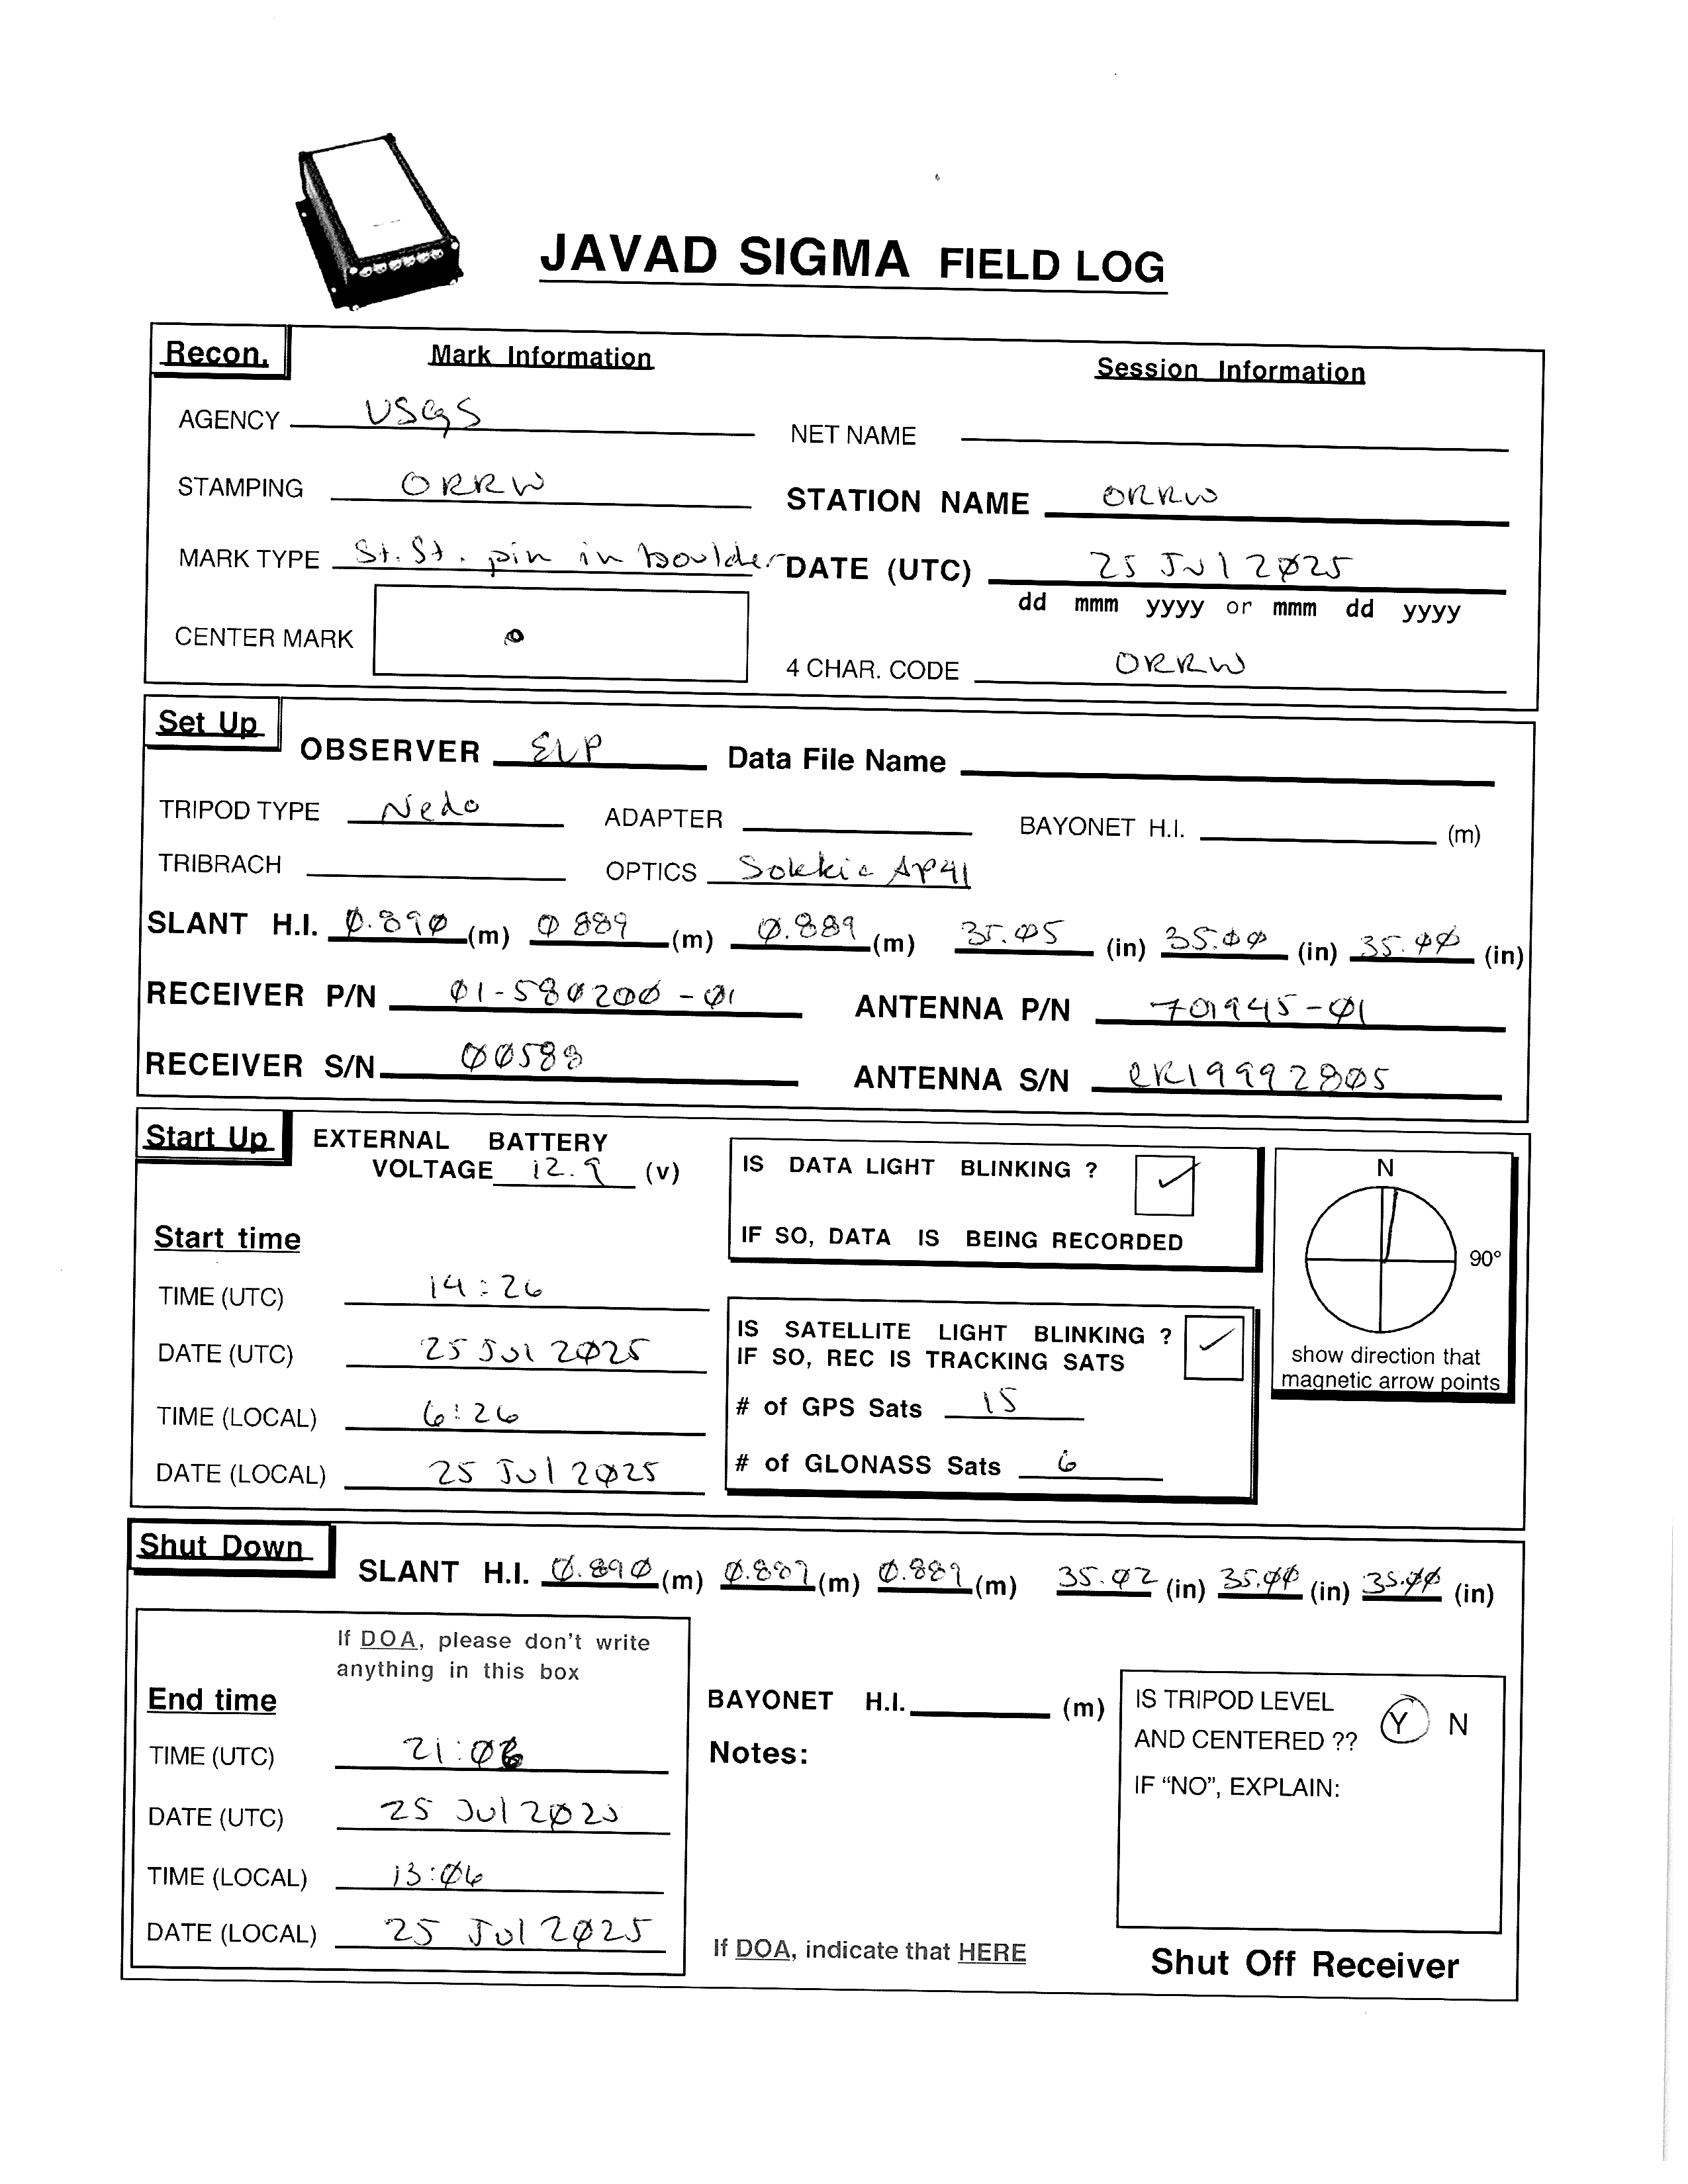 JAVAD SIGMA FIELD LOG
Recon. Mark Information Session Information
AGENCY USGS NET NAME
STAMPING ORRW STATION NAME ORRW
MARK TYPE St. St. pin in boulder DATE (UTC) 25 Jul 2025
dd mmm yyyy or mmm dd yyyy
CENTER MARK 4 CHAR. CODE ORRW
Set Up OBSERVER ELP Data File Name
TRIPOD TYPE Nedo ADAPTER BAYONET H.I. (m)
TRIBRACH OPTICS Sokkia AP41
SLANT H.I. 0.890 (m) 0 889 (m) 0.889 (m) 35.05 (in) 35.00 (in) 35.00 (in)
RECEIVER P/N 01-580200-01 ANTENNA P/N 701945-01
RECEIVER S/N 00588 ANTENNA S/N CR19992805
Start Up EXTERNAL BATTERY
VOLTAGE 12.9 (v) IS DATA LIGHT BLINKING ?
IF SO, DATA IS BEING RECORDED
N
90°
show direction that
magnetic arrow points
Start time
TIME (UTC) 14:26
DATE (UTC) 25 Jul 2025
TIME (LOCAL) 6:26
DATE (LOCAL) 25 Jul 2025
IS SATELLITE LIGHT BLINKING ?
IF SO, REC IS TRACKING SATS
# of GPS Sats 15
# of GLONASS Sats 6
Shut Down SLANT H.I. 0.890 (m) 0.889 (m) 0.889 (m) 35.02 (in) 35.00 (in) 35.00 (in)
If DOA, please don't write
anything in this box
End time
TIME (UTC) 21:06
DATE (UTC) 25 Jul 2025
TIME (LOCAL) 13:06
DATE (LOCAL) 25 Jul 2025
BAYONET H.I. (m)
Notes:
If DOA, indicate that HERE
IS TRIPOD LEVEL
AND CENTERED ?? Y N
IF “NO”, EXPLAIN:
Shut Off Receiver